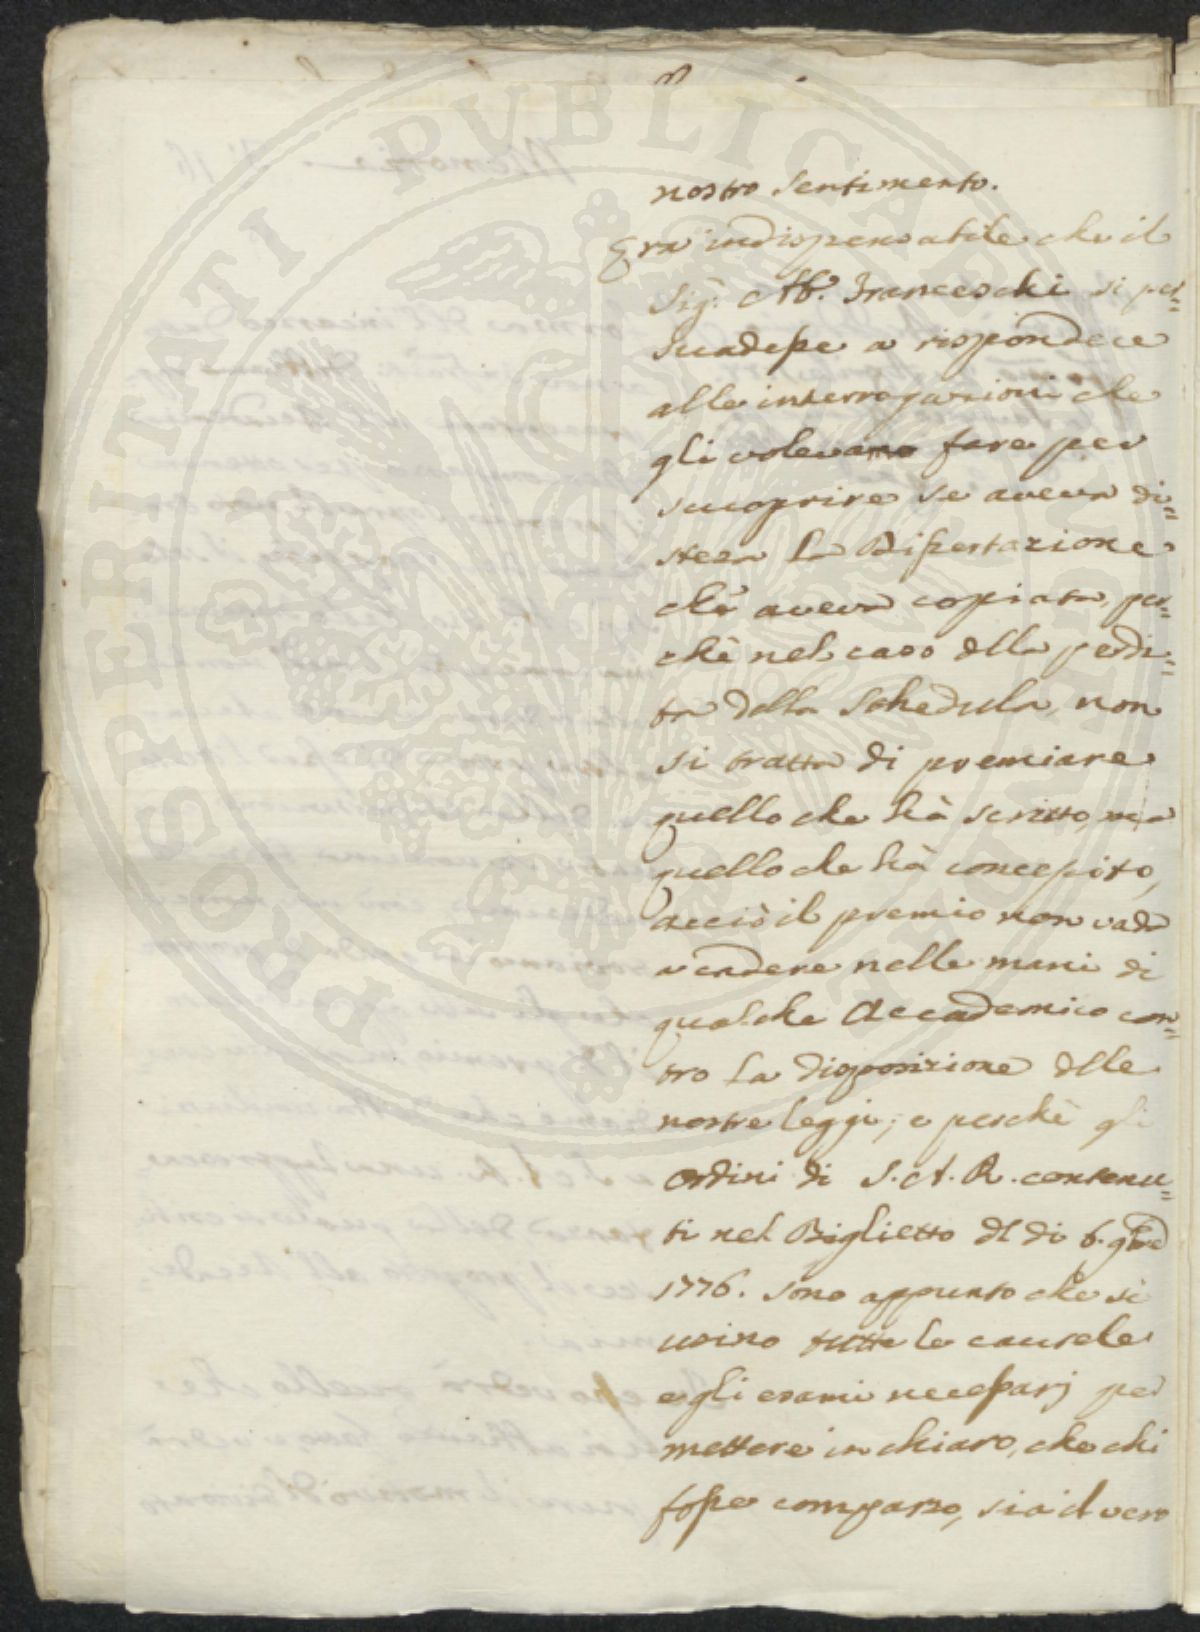 nostro sentimento.
Era indispensabile che il
Sig.r Ab.e Franceschi si per=
suadesse a rispondere
alle interrogazioni che
gli volevamo fare per
scuoprire se aveva di=
stesa la Dissertazione
che aveva copiata, per=
chè nel caso della perdi=
ta della Schedula, non
si tratta di premiare
quello che hà scritto, ma
quello che hà concepito,
acciò il premio non vada
a cadere nelle mani di
qualche Accademico con=
tro la disposizione delle
nostre leggi; e perchè gli
Ordini di S. A. R. contenu=
ti nel Biglietto del di 6. 9bre
1776. sono appunto che si
usino tutte le cautele
e gli esami necessarj per
mettere in chiaro, che chi
fosse comparso, sia il vero
PROSPERITATI PUBLICAE